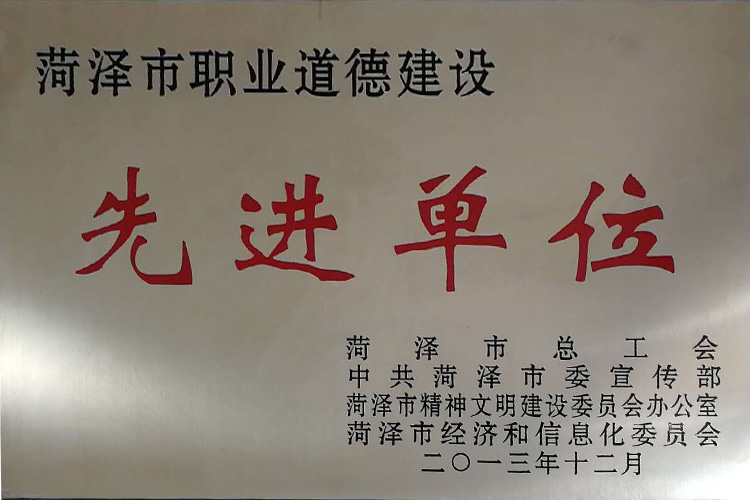 菏泽市职业道德建设
先进单位
菏泽市总工会
中共菏泽市委宣传部
菏泽市精神文明建设委员会办公室
菏泽市经济和信息化委员会
二〇一三年十二月